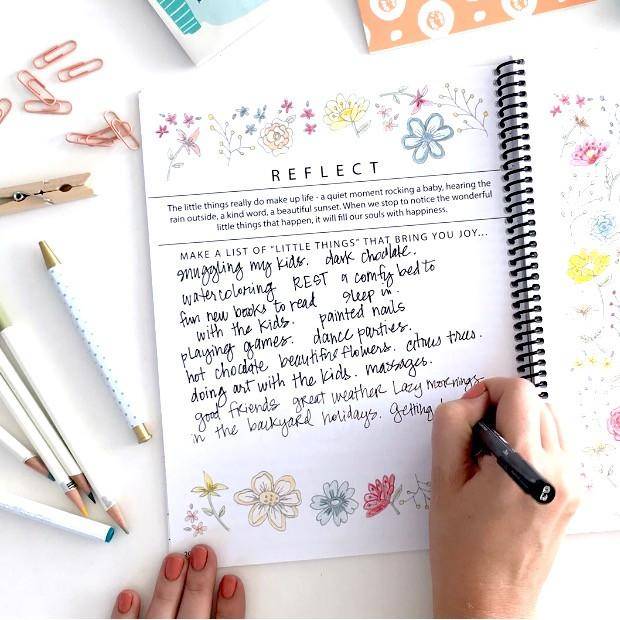 REFLECT
The little things really do make up life - a quiet moment rocking a baby, hearing the
rain outside, a kind word, a beautiful sunset. When we stop to notice the wonderful
little things that happen, it will fill our souls with happiness.
MAKE A LIST OF "LITTLE THINGS" THAT BRING YOU JOY...
snuggling my kids. dark choclate.
watercoloring REST a comfy bed to
fun new books to read sleep in.
with the kids. painted nails
playing games. dance parties.
hot choclate beautiful flowers. citrus trees.
doing art with the kids. massages.
good friends great weather Lazy mornings
in the backyard holidays. Getting